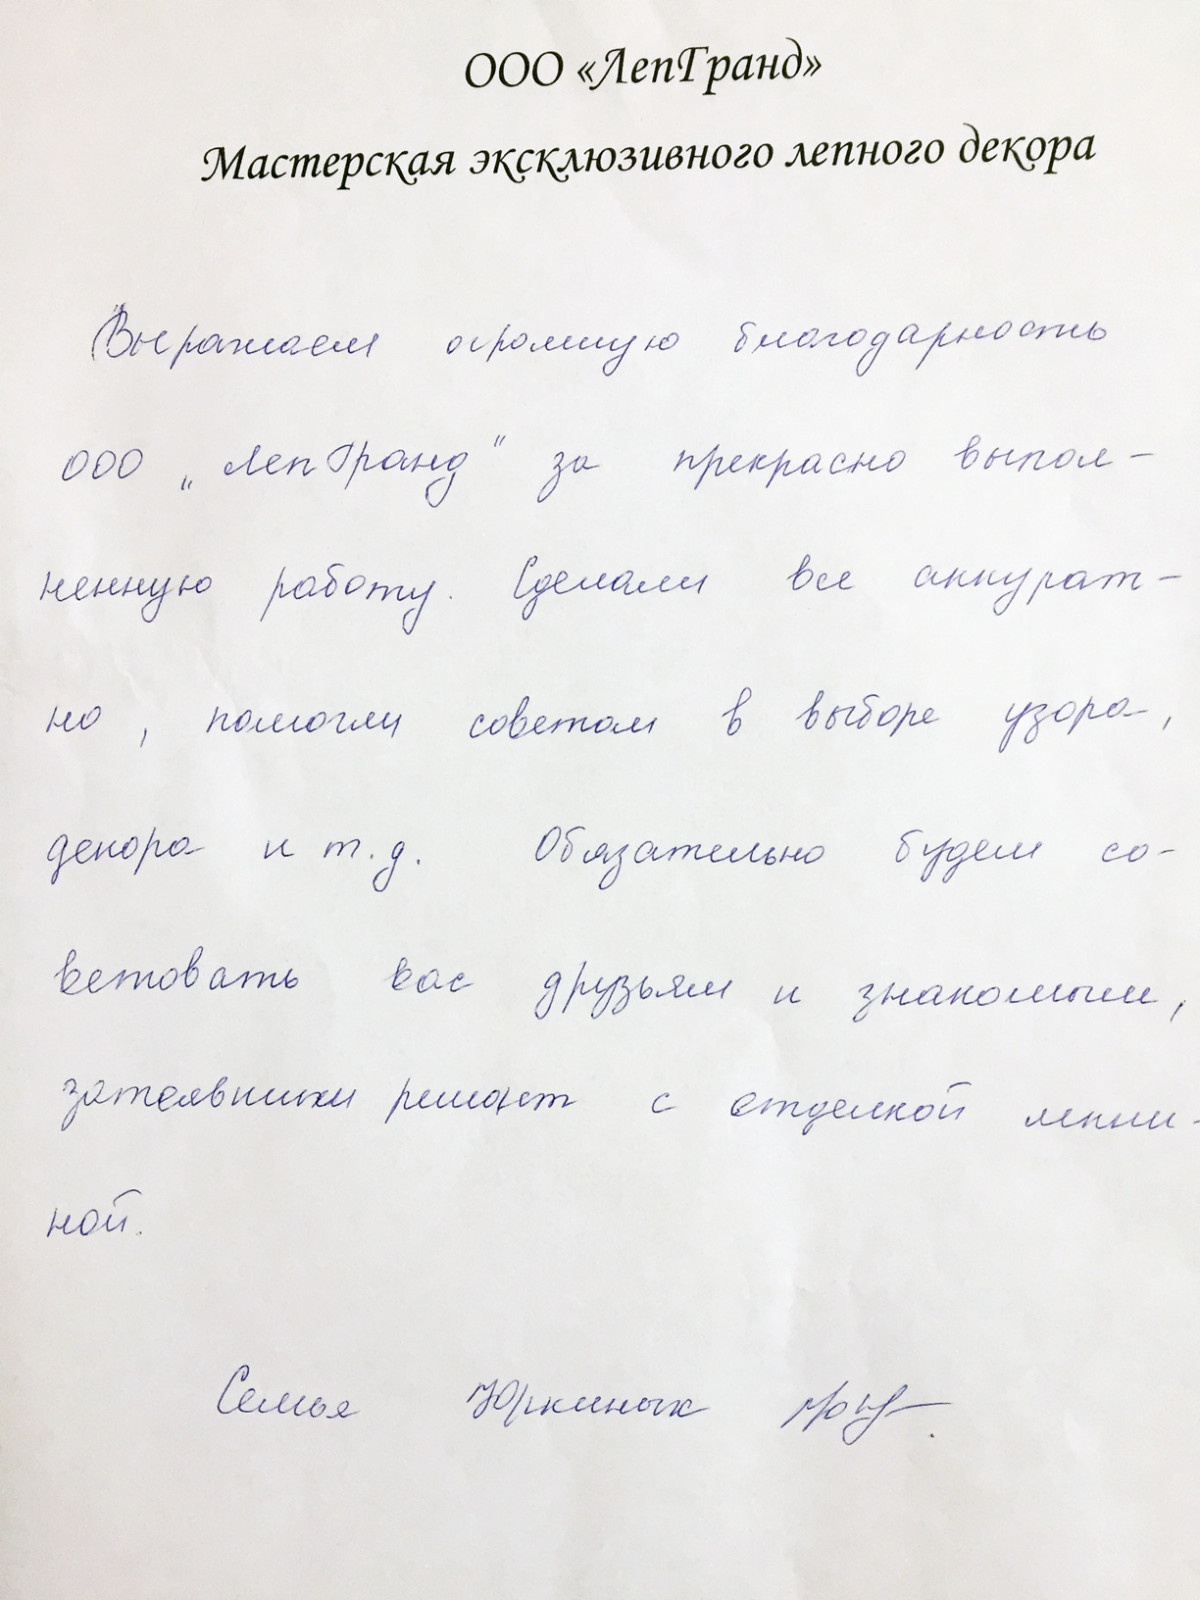 ООО «ЛепГранд»
Мастерская эксклюзивного лепного декора
Выражаем огромную благодарность
ООО „ЛепГранд" за прекрасно выпол-
ненную работу. Сделали все аккурат-
но, помогли советом в выборе узора,
декора и т.д. Обязательно будем со-
ветовать вас друзьям и знакомым,
затеявшими ремонт с отделкой лепни-
ной.
Семья Юркиных